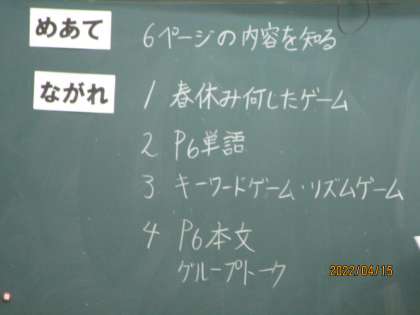 めあて 6ページの内容を知る
ながれ 1 春休み何したゲーム
2 P6単語
3 キーワードゲーム・リズムゲーム
4 P6本文
グループトーク
2022/04/15